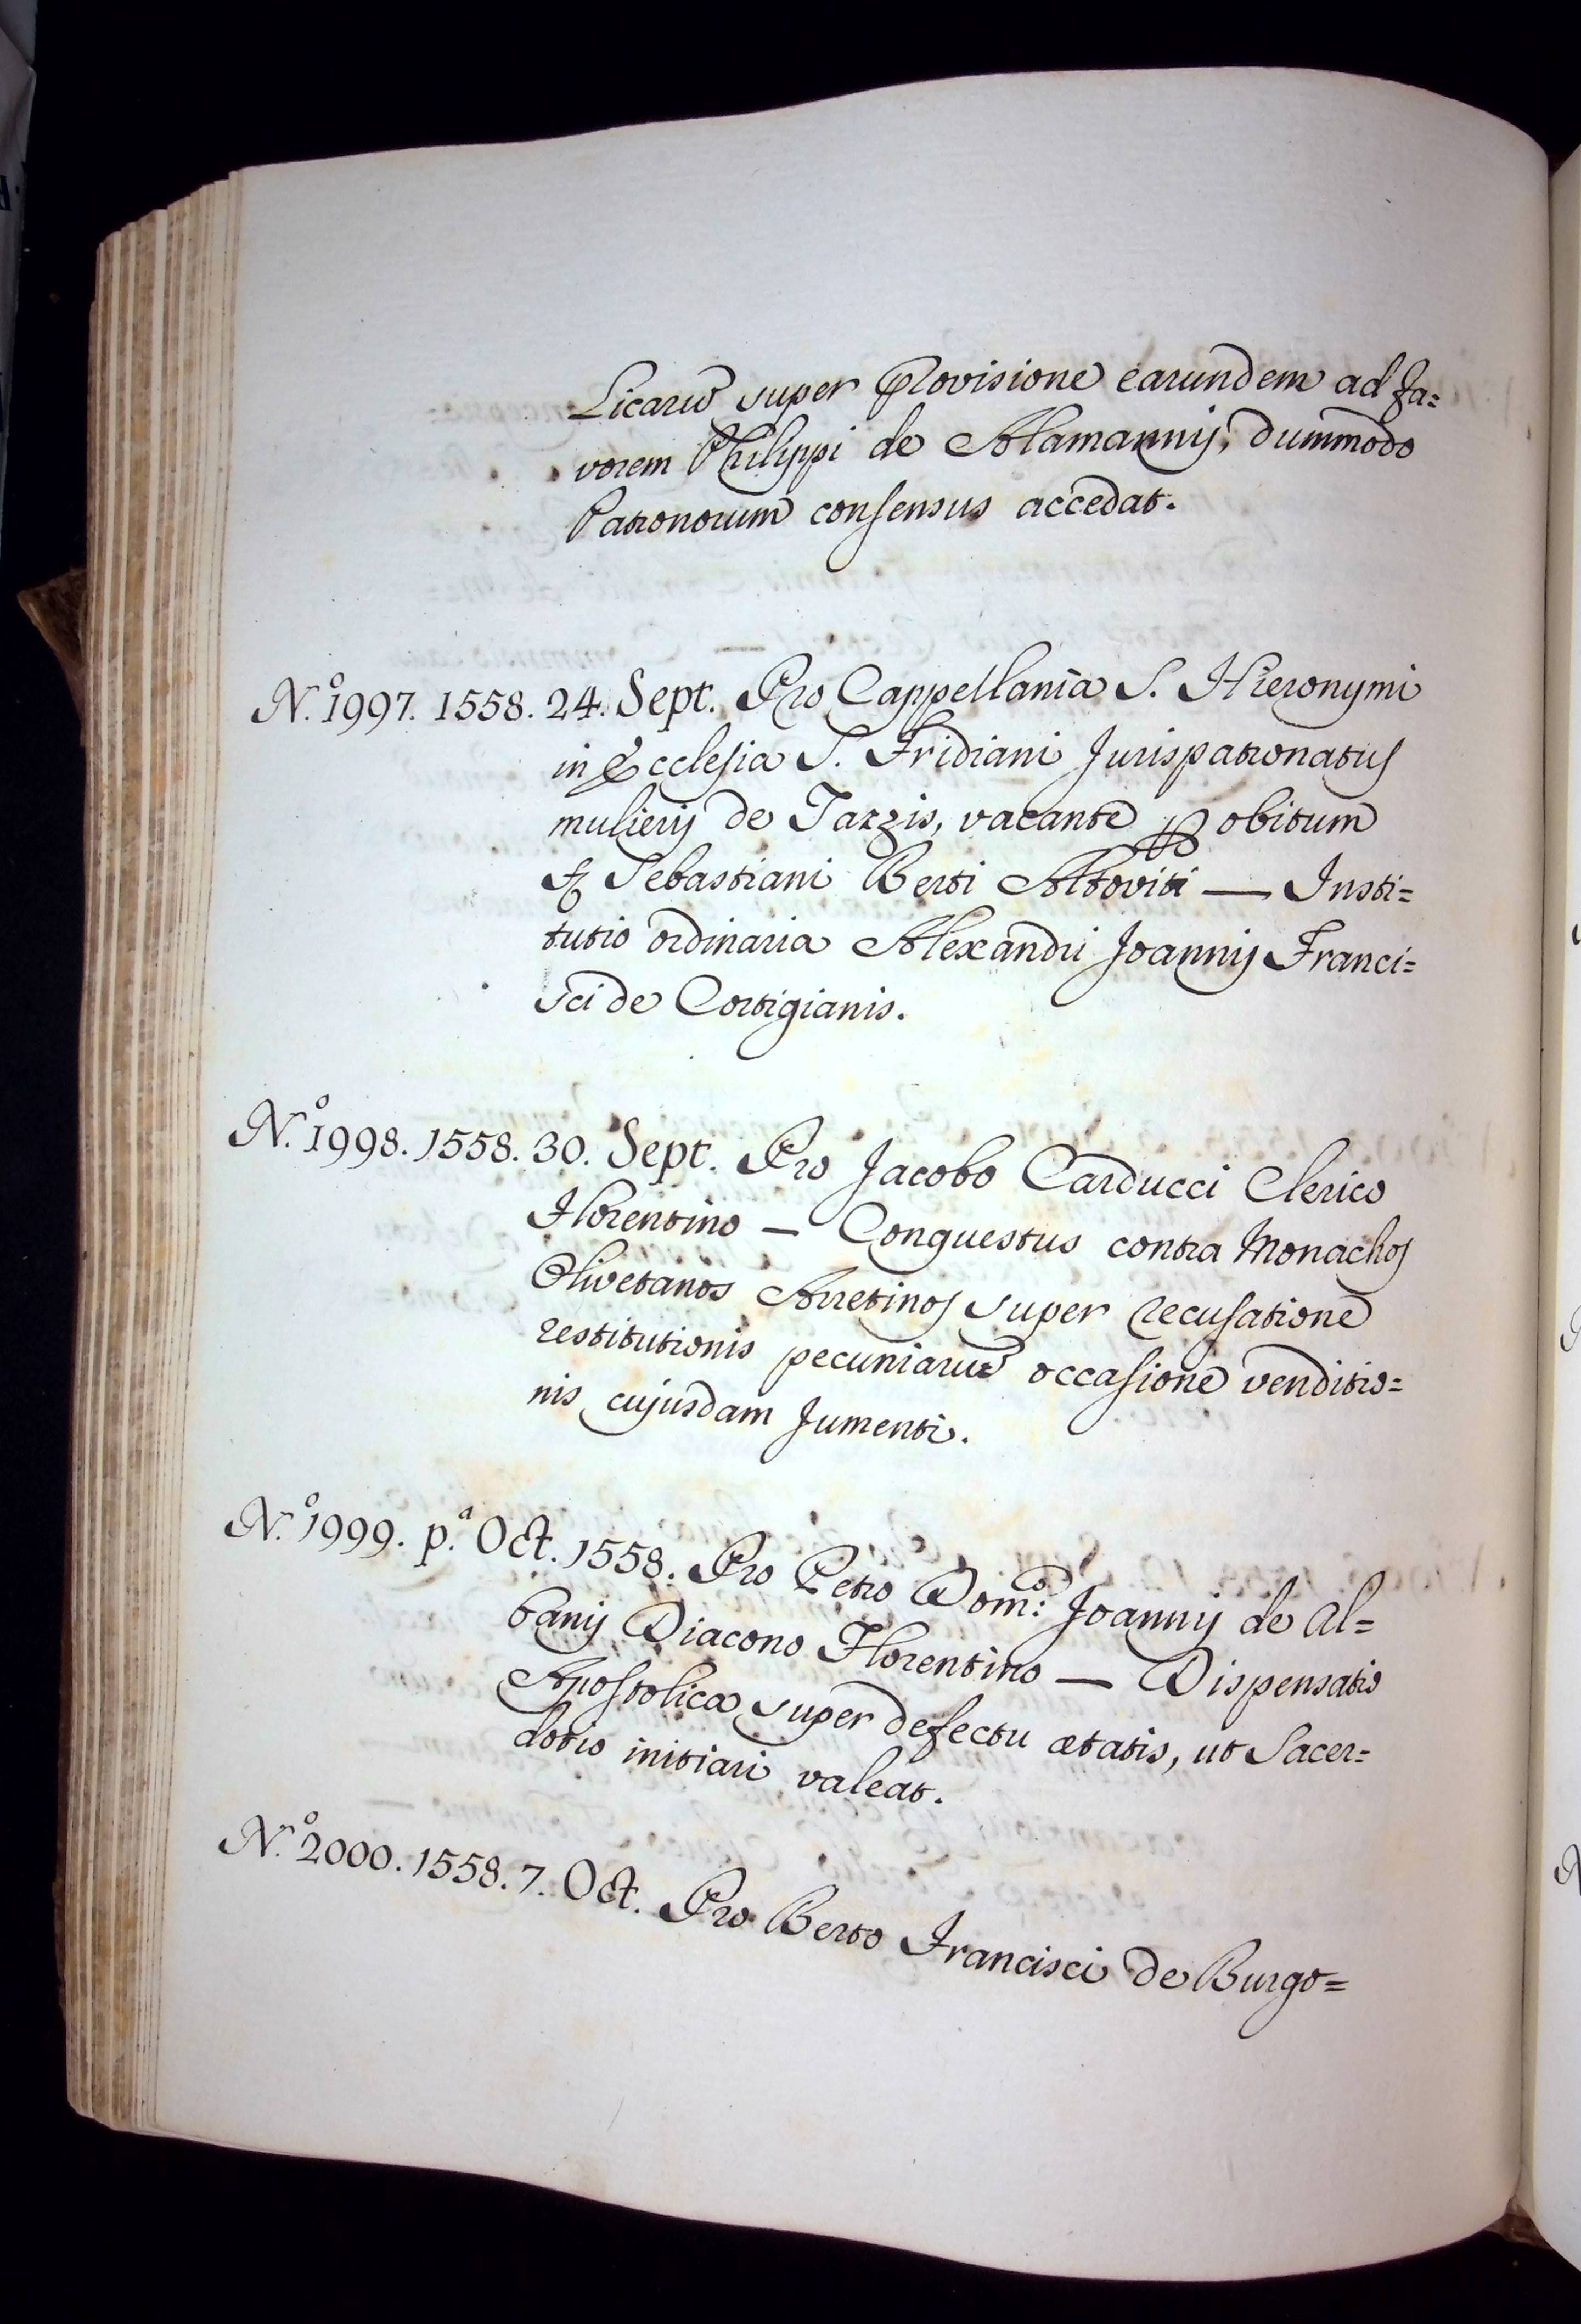 Licario super Provisione earundem ad Fa=
vorem Philippi de Alamannij, dummodo
Patronorum consensus accedat.
N.º 1997. 1558. 24. Sept. Pro Cappellania S. Hieronymi
in Ecclesia S. Fridiani Jurispatronatus
mulierij de Tazzis, vacante obitum
Sebastiani Berti Altoviti — Insti=
tutio ordinaria Alexandri Joannij Franci=
sci de Cortigianis.
N.º 1998. 1558. 30. Sept. Pro Jacobo Carducci Clerico
Florentino — Conquestus contra Monachos
Olivetanos Arretinos super recusatione
restitutionis pecuniarum occasione venditio=
nis cujusdam Jumenti.
N.º 1999. p.ª Oct. 1558. Pro Petro Dom.i Joannij de Al=
banij Diacono Florentino — Dispensatio
Apostolica super defectu ætatis, ut Sacer=
dotio initiari valeat.
N.º 2000. 1558. 7. Oct. Pro Berto Francisci de Burgo=